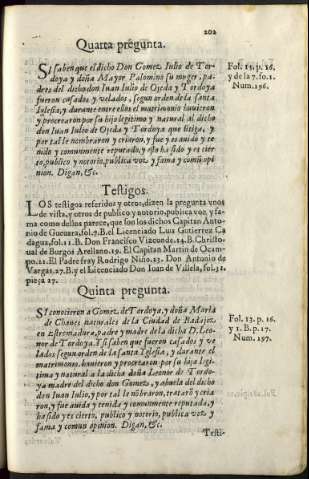 202
Quarta pregunta.
SI saben que el dicho Don Gomez Iulio de Tor-
doya y doña Mayor Palomino su muger, pa-
dres del dicho don Iuan Iulio de Ojeda y Tordoya
fueron casados y velados, segun orden de la santa
Iglesia, y durante entre ellos el matrimonio huuieron
y procrearon por su hijo legitimo y natural al dicho
don Iuan Iulio de Ojeda y Tordoya que litiga, y
por tal le nombraron y criaron, y fue y es auido y te-
nido y comunmente reputado, y esto ha sido y es cier-
to, publico y notorio, publica voz y fama y comũ opi
nion. Digan, &c.
Fol. 15. p. 16.
y de la 7. fo. 1.
Num. 196.
Testigos.
LOS testigos referidos y otros, dizen la pregunta vnos
de vista, y otros de publico y notorio, publica voz, y fa-
ma como dellos parece, que son los dichos Capitan Anto-
nio de Gueuara, fol. 7. B. el Licenciado Luis Gutierrez Ca
dagua, fol. 11. B. Don Francisco Vizconde. 14. B. Christo-
ual de Burgos Arellano. 19. El Capitan Martin de Ocan-
po. 21. El Padre fray Rodrigo Niño. 23. Don Antonio de
Vargas, 27. B. y el Licenciado Don Iuan de Villela, fol. 31.
pieça 27.
Quinta pregunta.
SI conocieron a Gomez de Tordoya, y doña Maria
de Chaues naturales de la Ciudad de Badajoz,
en Estremadura, padre y madre de la dicha D. Leo
nor de Tordoya. Y si saben que fueron casados y ve
lados segun orden de la santa Iglesia, y durante el
matrimonio, huuieron y procrearon por su hija legi-
tima y natural a la dicha doña Leonor de Tordo-
ya madre del dicho don Gomez, y abuela del dicho
don Iuan Iulio, y por tal le nõbraron, trataró y cria
ron, y fue auida y tenida y comunmente reputada, y
ha sido y es cierto, publico y notorio, publica voz y
fama y comun opinion. Digan, &c.
Fol. 13. p. 16.
y 1. B. p. 17.
Num. 197.
Testi-